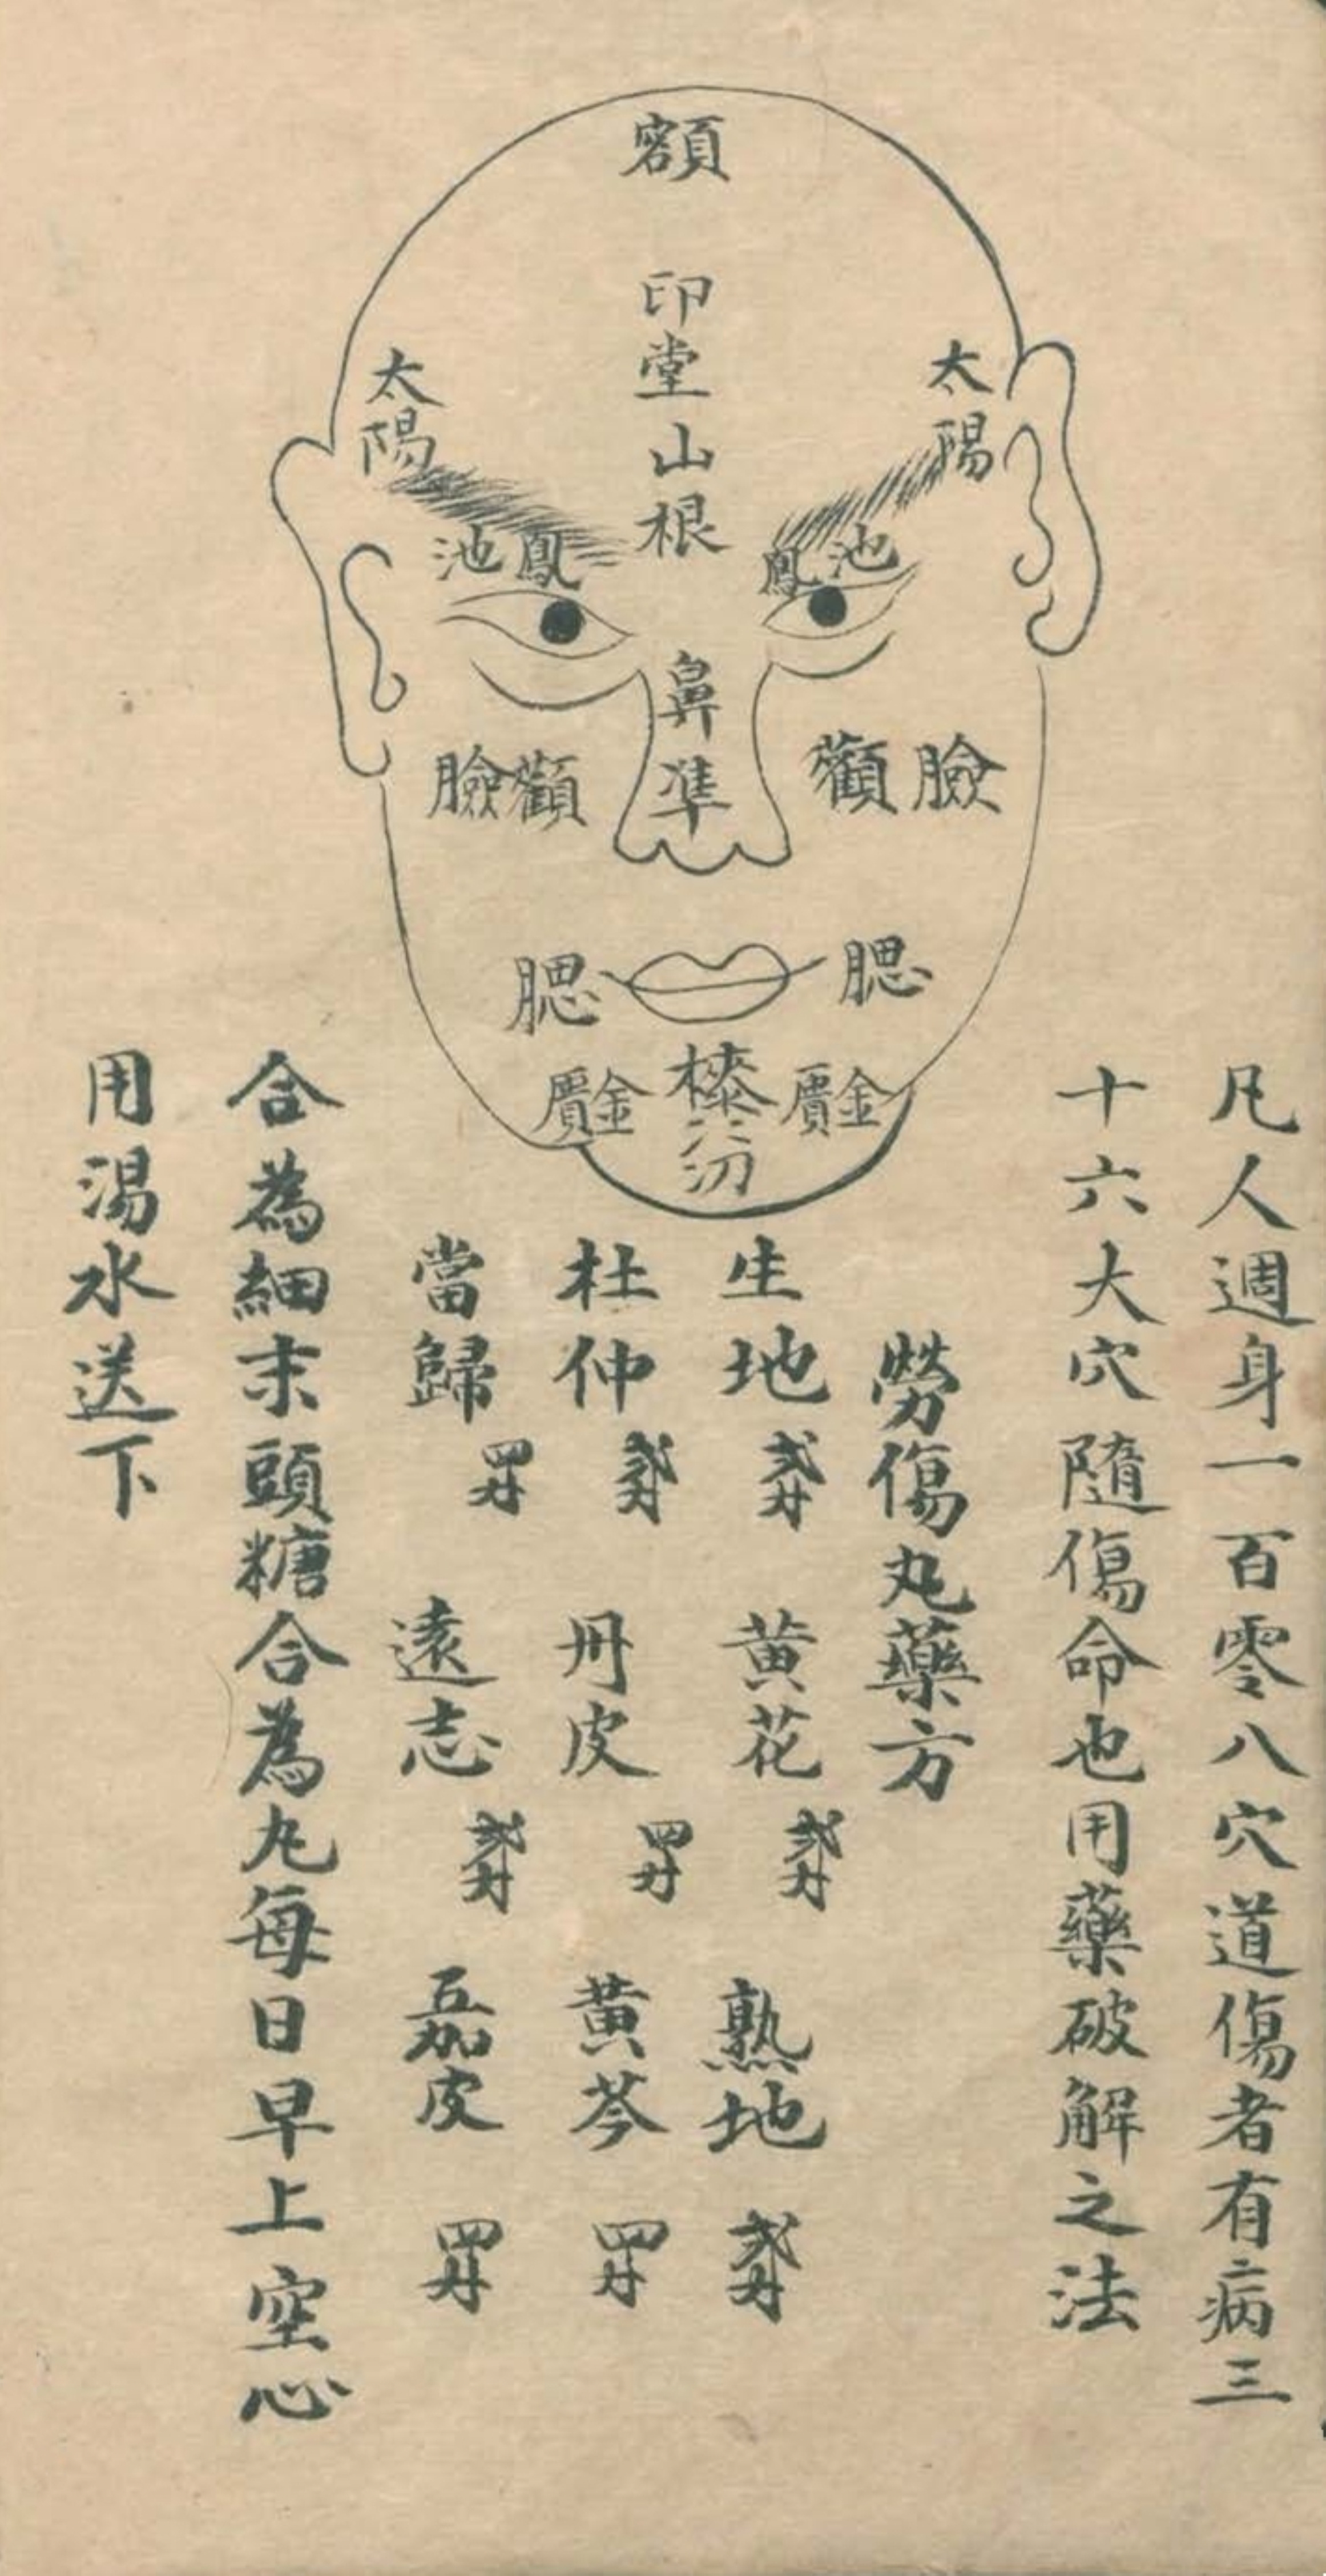 額
印堂
山根
太陽
太陽
鳳池
鳳池
鼻準
顴臉
臉顴
腮
腮
金
金
凡人週身一百零八穴道傷者有病三
十六大穴隨傷命也用藥破解之法
勞傷丸藥方
生地 弍分 黃花 弍分 熟地 弍分
杜仲 弍分 丹皮 四分 黃芩 四分
當歸 四分 遠志 弍分 五加皮 四分
合為細末頭糖合為丸每日早上空心
用湯水送下